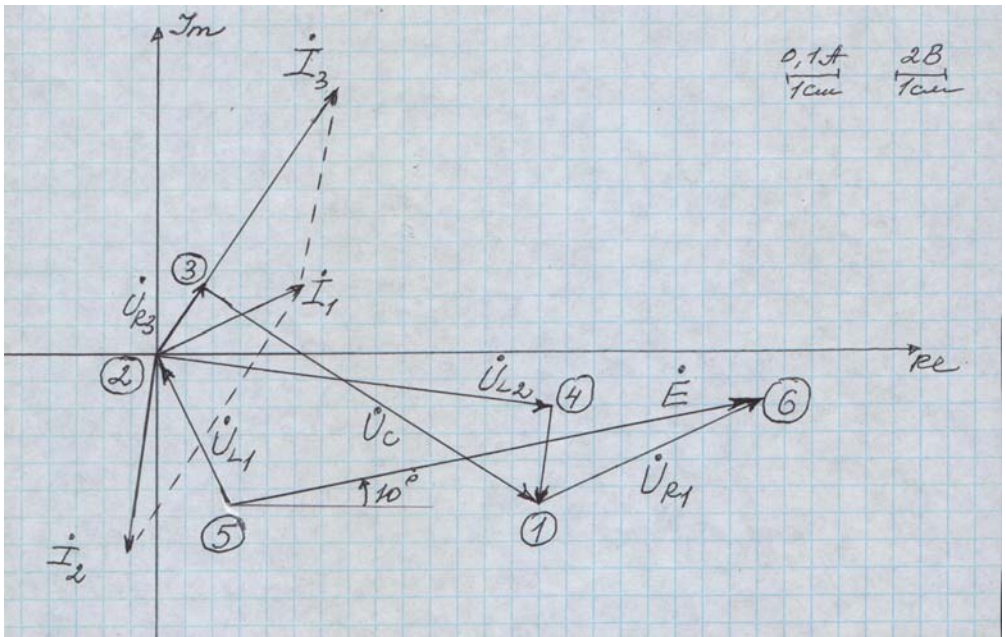 Im
İ₃
0,1A
1см
2В
1см
③
U̇R3
İ₁
②
Re
U̇L2
④
Ė
⑥
U̇C
U̇L1
10°
U̇R1
⑤
①
İ₂